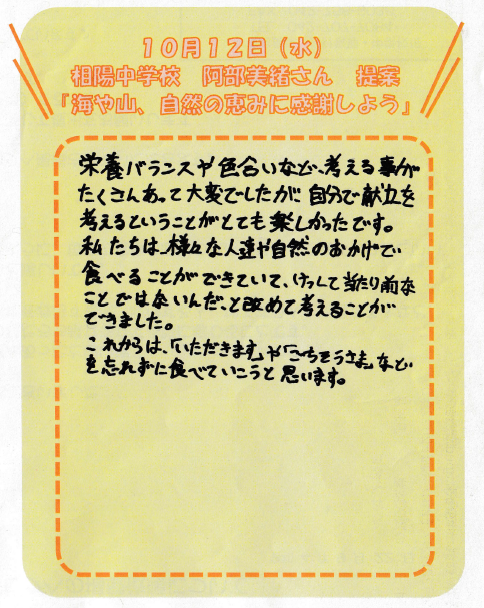 10月12日（水）
相陽中学校　阿部美緒さん　提案
「海や山、自然の恵みに感謝しよう」
栄養バランスや色合いなど、考える事が
たくさんあって大変でしたが、自分で献立を
考えるということがとても楽しかったです。
私たちは、様々な人達や自然のおかげで
食べることができていて、けっして当たり前な
ことではないんだ、と改めて考えることが
できました。
これからは、「いただきます」や「ごちそうさま」など
を忘れずに食べていこうと思います。